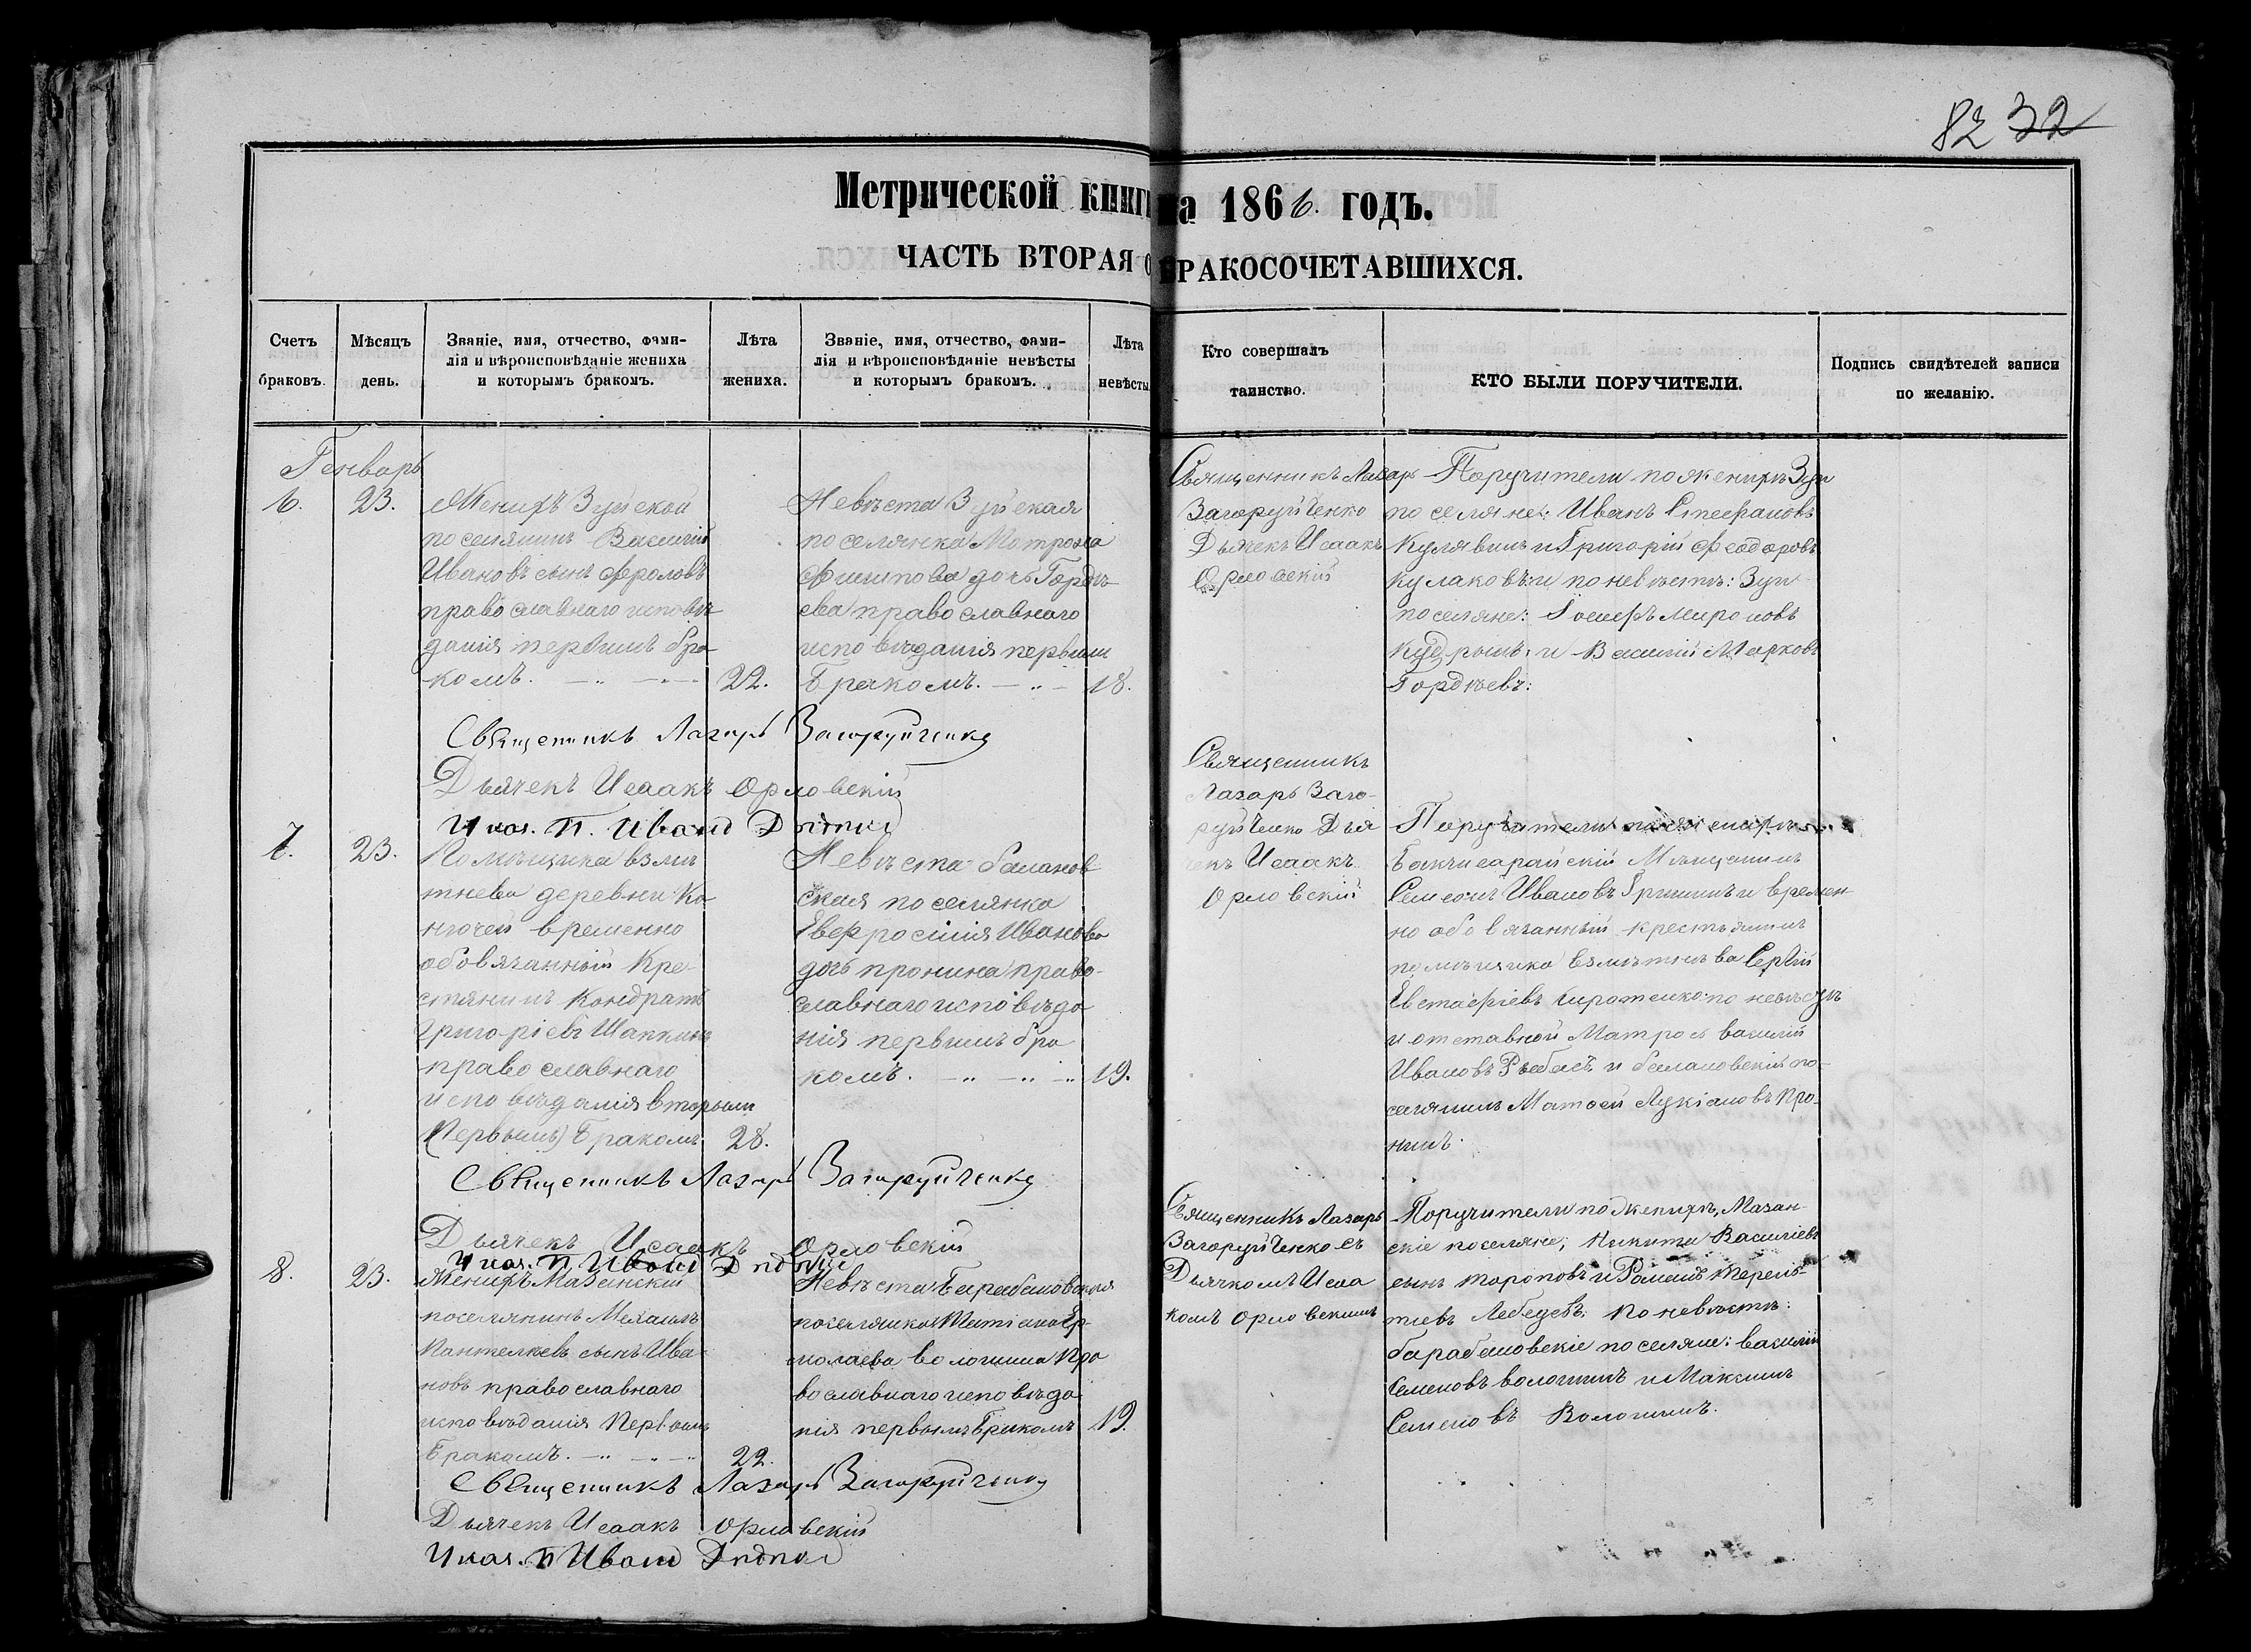 82 32
Метрической книг на 1866. годъ.
ЧАСТЬ ВТОРАЯ О БРАКОСОЧЕТАВШИХСЯ.
Счетъ браковъ.
Мѣсяцъ день.
Званіе, имя, отчество, фами-
лія и вѣроисповѣданіе жениха
и которымъ бракомъ.
Лѣта
жениха.
Званіе, имя, отчество, фами-
лія и вѣроисповѣданіе невѣсты
и которымъ бракомъ.
Лѣта
невѣсты
Кто совершалъ
таинство.
КТО БЫЛИ ПОРУЧИТЕЛИ.
Подпись свидѣтелей записи
по желанію.
Генварь
6.
23.
Женихъ Зуйской
поселянинъ Василій
Ивановъ сынъ Фроловъ
православнаго исповѣ-
данія первымъ бра-
комъ.
22.
Невѣста Зуйская
поселянка Матрона
Филипова дочь Гордѣ-
ева православнаго
исповѣданія первымъ
Бракомъ.
18.
Священникъ Лазарь
Загоруйченко
Дьячекъ Исаакъ
Орловскій
Поручители по женихѣ Зуи
поселяне: Иванъ Стефановъ
Кулявинъ и Григорій Феодоровъ
кулаковъ: и по невѣстѣ: Зуи
поселяне: Іосифъ Мироновъ
и Василій Марковъ
Гордѣевъ:
Священникъ Лазарь Загоруйченко
Дьячекъ Исаакъ Орловскій
Иванъ
7.
23.
Помѣщика взмѣ
тнева деревни Ко
нгочей временно
обовязанный Кре-
стянинъ Кондратъ
Григоріевъ Шапкинъ
православнаго
исповѣданія вторымъ
(Первымъ) Бракомъ
28.
Невѣста балановс
ская поселянка
Евфросинія Иванова
дочь пронина право-
славнаго исповѣда
нія первымъ бра
комъ.
19.
Священникъ
Лазарь Заго-
руйченко Дья
чекъ Исаакъ
Орловскій
Поручители по женихѣ
Бакчисарайскій Мѣщанинъ
Семеонъ Ивановъ Гришинъ и времен-
но обовязанный крестьянинъ
помѣщика взмѣтнева Сергій
Евстафіевъ по невѣстѣ
и отставной Матросъ василій
Ивановъ и балановскій по-
селянинъ Матѳей Лукіановъ Про-
нинъ.
Священникъ Лазарь Загоруйченко
Дьячекъ Исаакъ Орловскій
Иванъ
8.
23.
Женихъ Мазанскій
поселянинъ Михаилъ
Пантелѣевъ сынъ Ива-
новъ православнаго
исповѣданія Первымъ
Бракомъ.
22.
Невѣста Барабановская
поселянка Татіана Ер-
молаева волошина Пра
вославнаго исповѣда
нія первымъ Бракомъ
19.
Священникъ Лазарь
Загоруйченко съ
Дьячкомъ Исаа
комъ Орловскимъ
Поручители по женихѣ, Мазан-
скіе поселяне; Никита Васильевъ
сынъ тороповъ и Романъ терень-
тіевъ Лебедевъ. По невѣстѣ:
барабановскіе поселяне: василій
Семеновъ волошинъ и Максимъ
Семеновъ Волошинъ.
Священникъ Лазарь Загоруйченко
Дьячекъ Исаакъ Орловскій
Иванъ